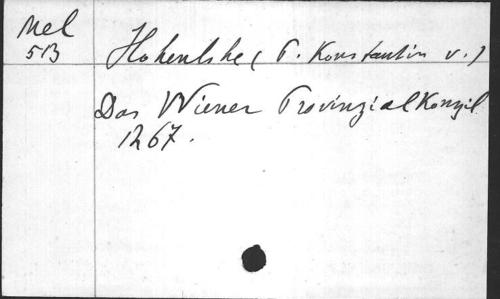 Mel
513
Hohenlohe ( P. Konstantin v. )
Das Wiener Provinzialkonzil
1267.